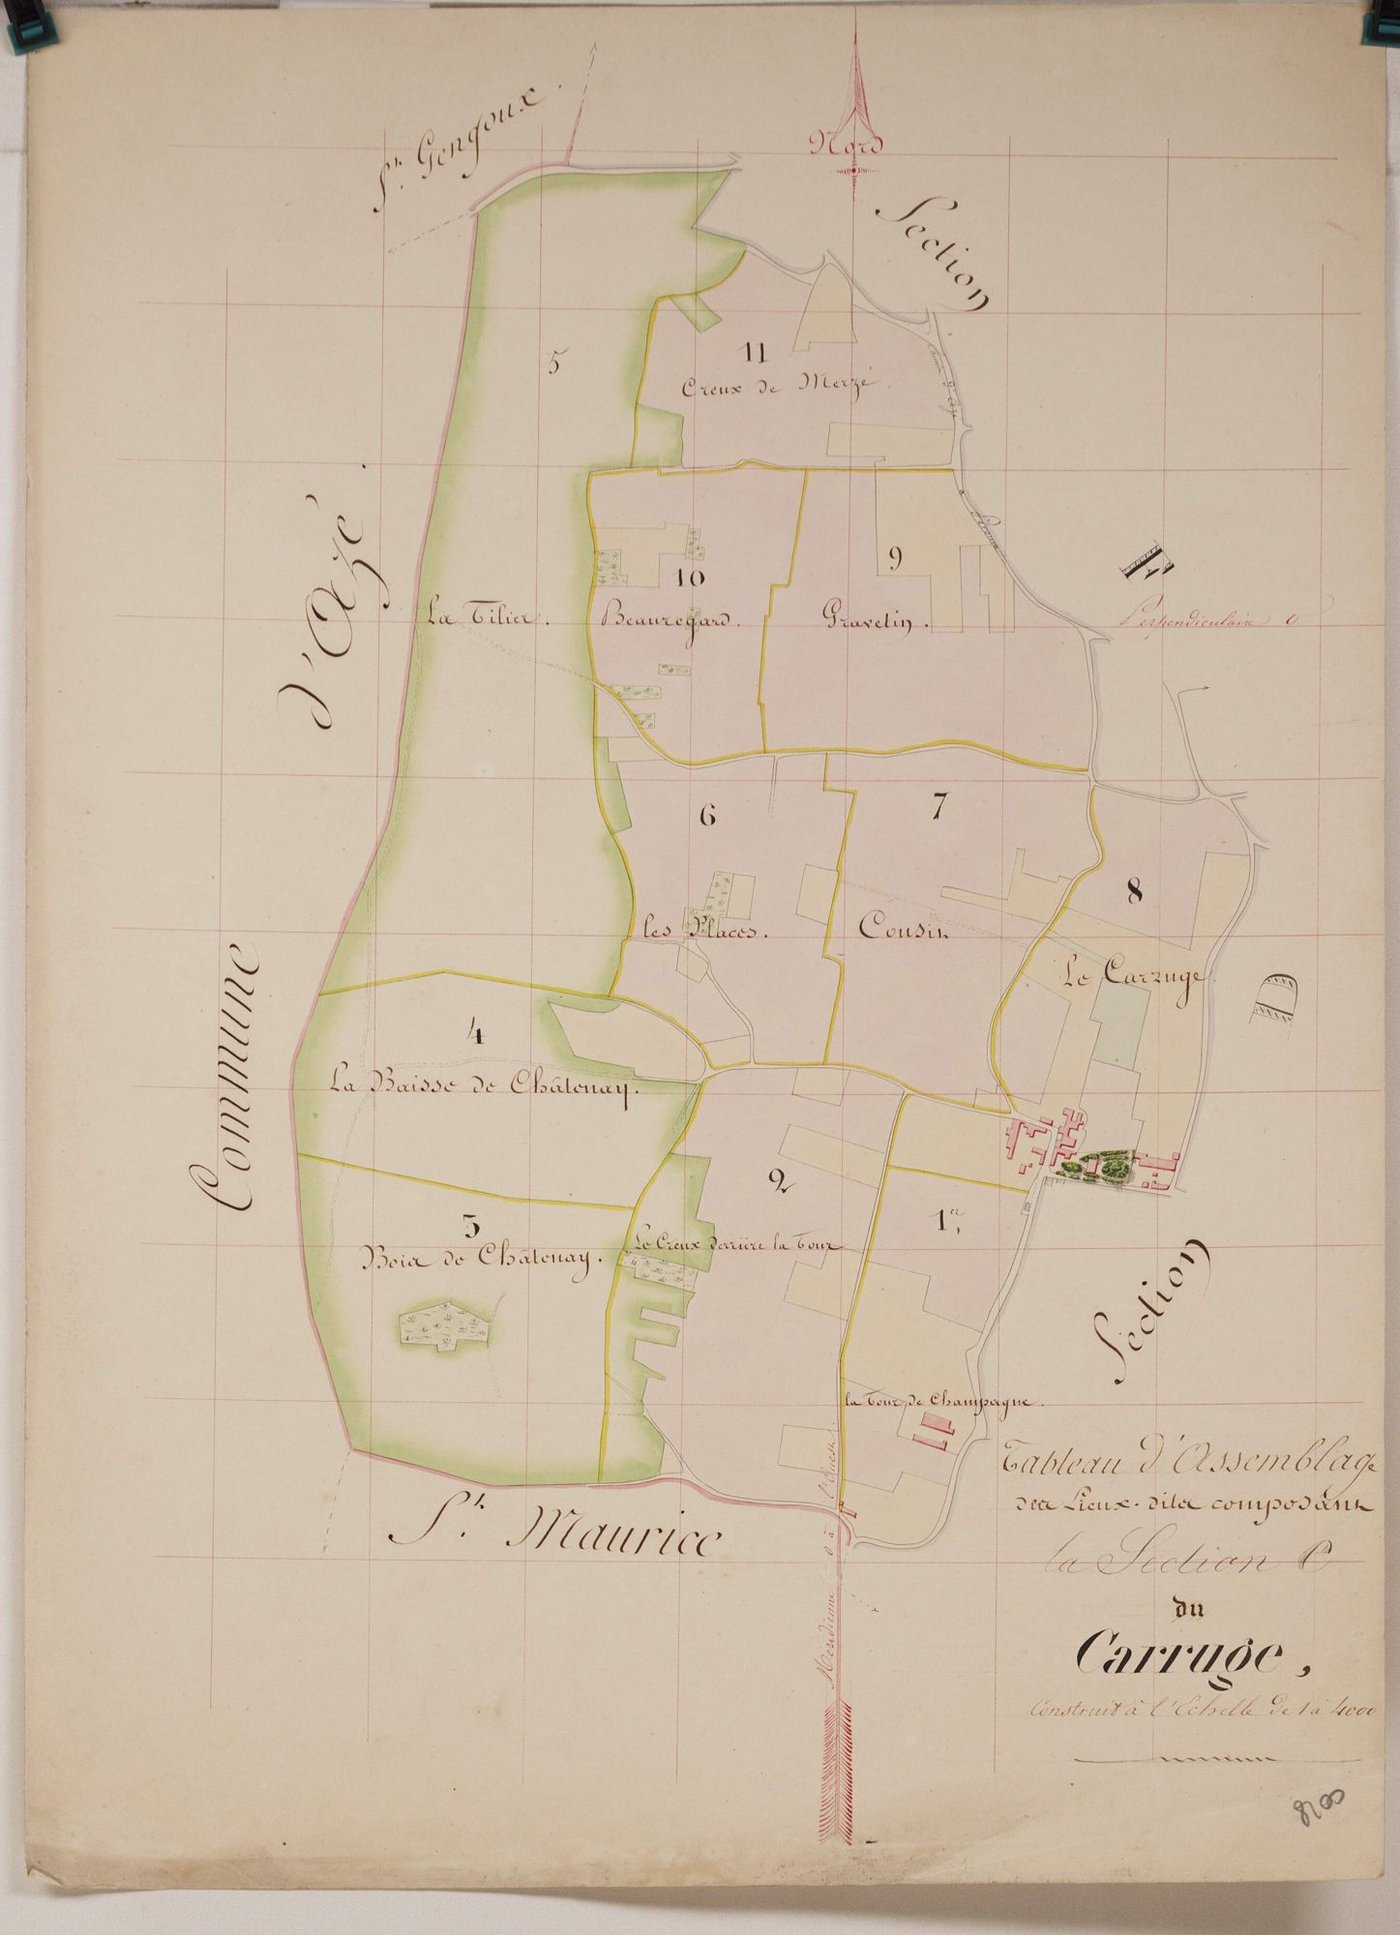 St. Gengoux.
Nord
Section
5
11
Creux de Merzé.
d'Azé.
E
9
10
La Tilier.
Beauregard.
Gravetin.
Perpendiculaire O
6
7
8
les Places.
Cousin
Le Carruge.
D
Commune
4
La Baisse de Châtenay.
2
1er,
3
Bois de Châtenay.
Le Creux derrière la Tour
Section
la Tour de Champagne.
St. Maurice
Méridienne o à l'Ouest
Tableau d'Assemblage
des Lieux-dits composant
la Section C
du
Carruge,
Construit à l'Echelle de 1 à 4000